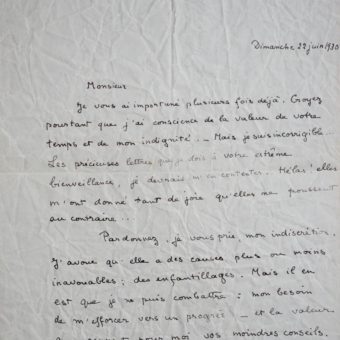 Dimanche 22 juin 1930
Monsieur
Je vous ai importuné plusieurs fois déjà. Croyez
pourtant que j'ai conscience de la valeur de votre
temps et de mon indignité... Mais je suis incorrigible...
Les précieuses lettres que je dois à votre extrême
bienveillance, je devrais m'en contenter. Hélas! elles
m'ont donné tant de joie qu'elles me poussent
au contraire...
Pardonnez, je vous prie, mon indiscrétion,
J'avoue qu'elle a des causes plus ou moins
inavouables; des enfantillages. Mais il en
est que je ne puis combattre: mon besoin
de m'efforcer vers un progrès - et la valeur
pour moi vos moindres conseils.